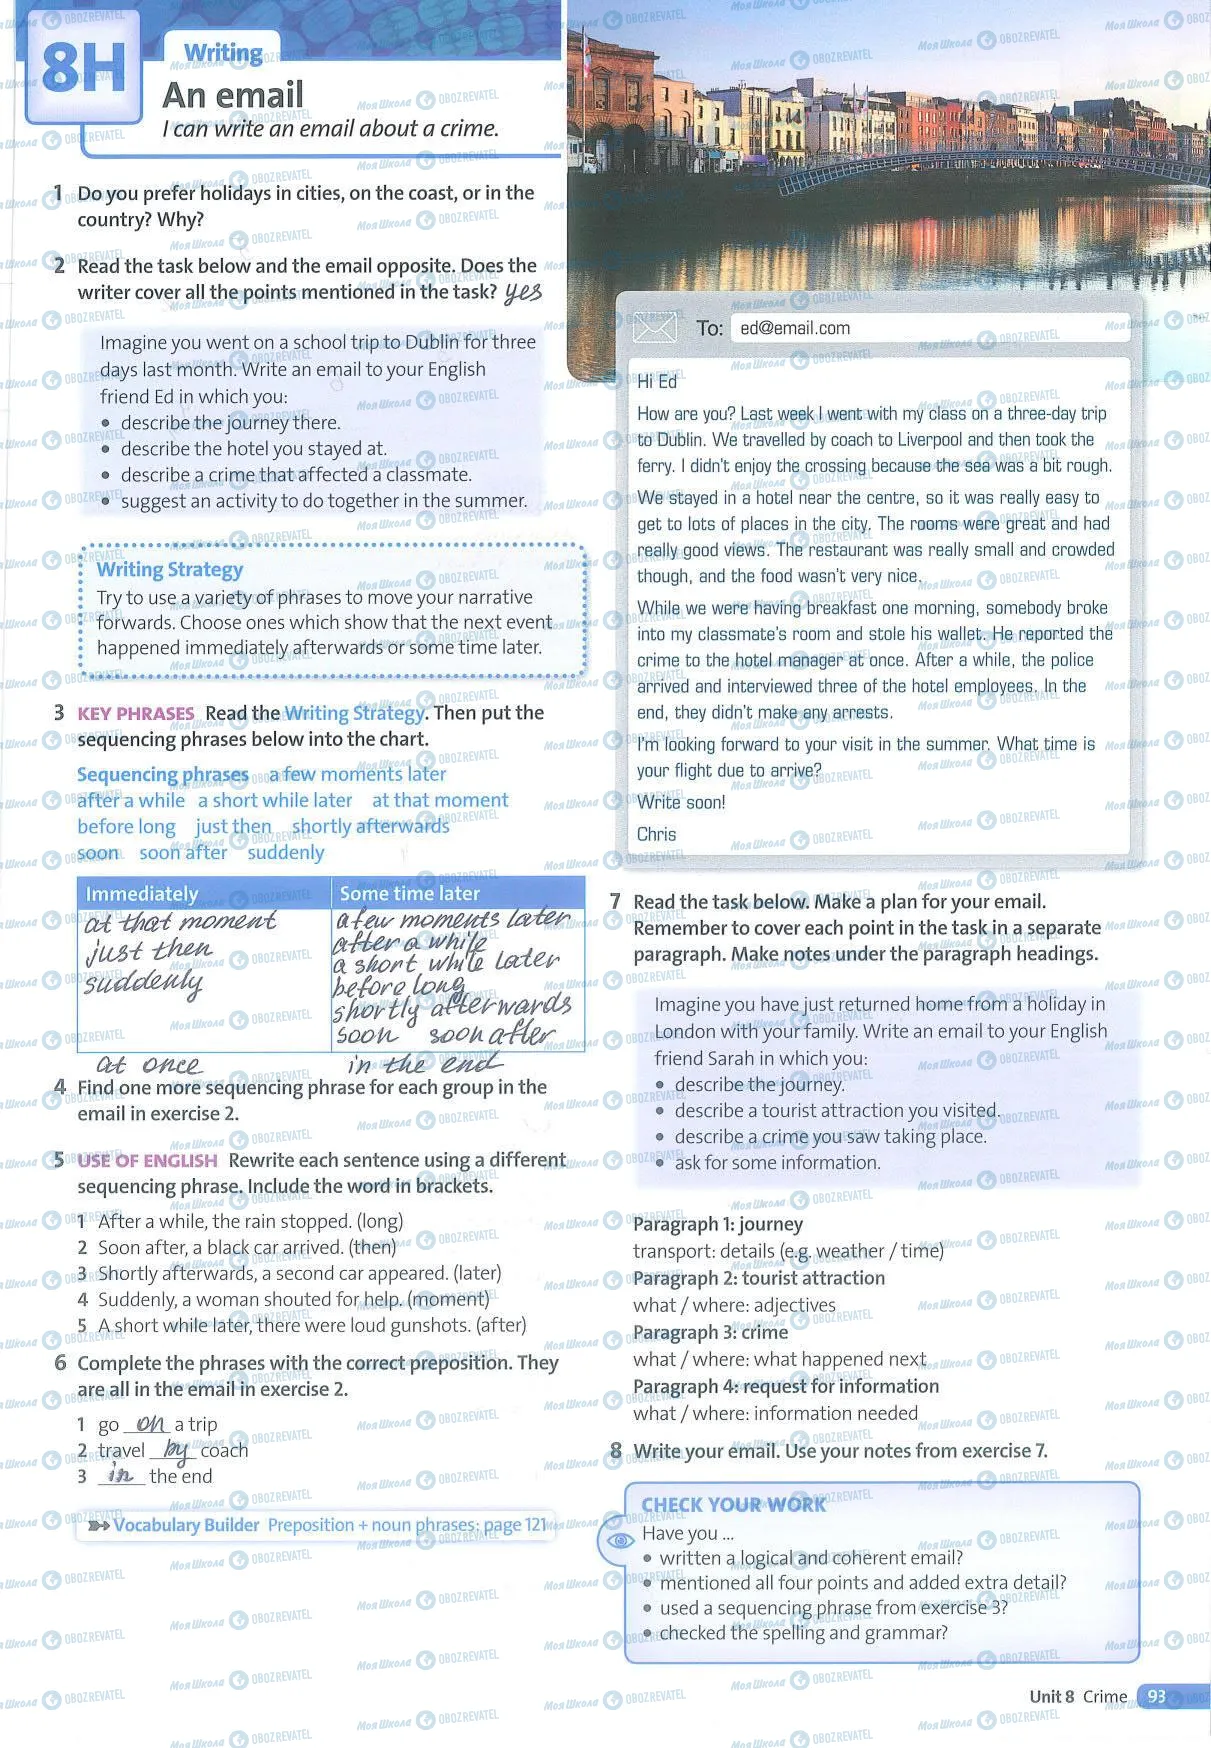 8H
Writing
An email
I can write an email about a crime.
1 Do you prefer holidays in cities, on the coast, or in the
country? Why?
2 Read the task below and the email opposite. Does the
writer cover all the points mentioned in the task? yes
Imagine you went on a school trip to Dublin for three
days last month. Write an email to your English
friend Ed in which you:
• describe the journey there.
• describe the hotel you stayed at.
• describe a crime that affected a classmate.
• suggest an activity to do together in the summer.
Writing Strategy
Try to use a variety of phrases to move your narrative
forwards. Choose ones which show that the next event
happened immediately afterwards or some time later.
3 KEY PHRASES Read the Writing Strategy. Then put the
sequencing phrases below into the chart.
Sequencing phrases a few moments later
after a while a short while later at that moment
before long just then shortly afterwards
soon soon after suddenly
Immediately Some time later
at that moment a few moments later
just then after a while
suddenly a short while later
before long
shortly afterwards
soon soon after
at once in the end
4 Find one more sequencing phrase for each group in the
email in exercise 2.
5 USE OF ENGLISH Rewrite each sentence using a different
sequencing phrase. Include the word in brackets.
1 After a while, the rain stopped. (long)
2 Soon after, a black car arrived. (then)
3 Shortly afterwards, a second car appeared. (later)
4 Suddenly, a woman shouted for help. (moment)
5 A short while later, there were loud gunshots. (after)
6 Complete the phrases with the correct preposition. They
are all in the email in exercise 2.
1 go on a trip
2 travel by coach
3 in the end
Vocabulary Builder Preposition + noun phrases: page 121
To: ed@email.com
Hi Ed
How are you? Last week I went with my class on a three-day trip
to Dublin. We travelled by coach to Liverpool and then took the
ferry. I didn't enjoy the crossing because the sea was a bit rough.
We stayed in a hotel near the centre, so it was really easy to
get to lots of places in the city. The rooms were great and had
really good views. The restaurant was really small and crowded
though, and the food wasn't very nice.
While we were having breakfast one morning, somebody broke
into my classmate's room and stole his wallet. He reported the
crime to the hotel manager at once. After a while, the police
arrived and interviewed three of the hotel employees. In the
end, they didn't make any arrests.
I'm looking forward to your visit in the summer. What time is
your flight due to arrive?
Write soon!
Chris
7 Read the task below. Make a plan for your email.
Remember to cover each point in the task in a separate
paragraph. Make notes under the paragraph headings.
Imagine you have just returned home from a holiday in
London with your family. Write an email to your English
friend Sarah in which you:
• describe the journey.
• describe a tourist attraction you visited.
• describe a crime you saw taking place.
• ask for some information.
Paragraph 1: journey
transport: details (e.g. weather / time)
Paragraph 2: tourist attraction
what / where: adjectives
Paragraph 3: crime
what / where: what happened next
Paragraph 4: request for information
what / where: information needed
8 Write your email. Use your notes from exercise 7.
CHECK YOUR WORK
Have you ...
• written a logical and coherent email?
• mentioned all four points and added extra detail?
• used a sequencing phrase from exercise 3?
• checked the spelling and grammar?
Unit 8 Crime 93
Моя Школа OBOZREVATEL